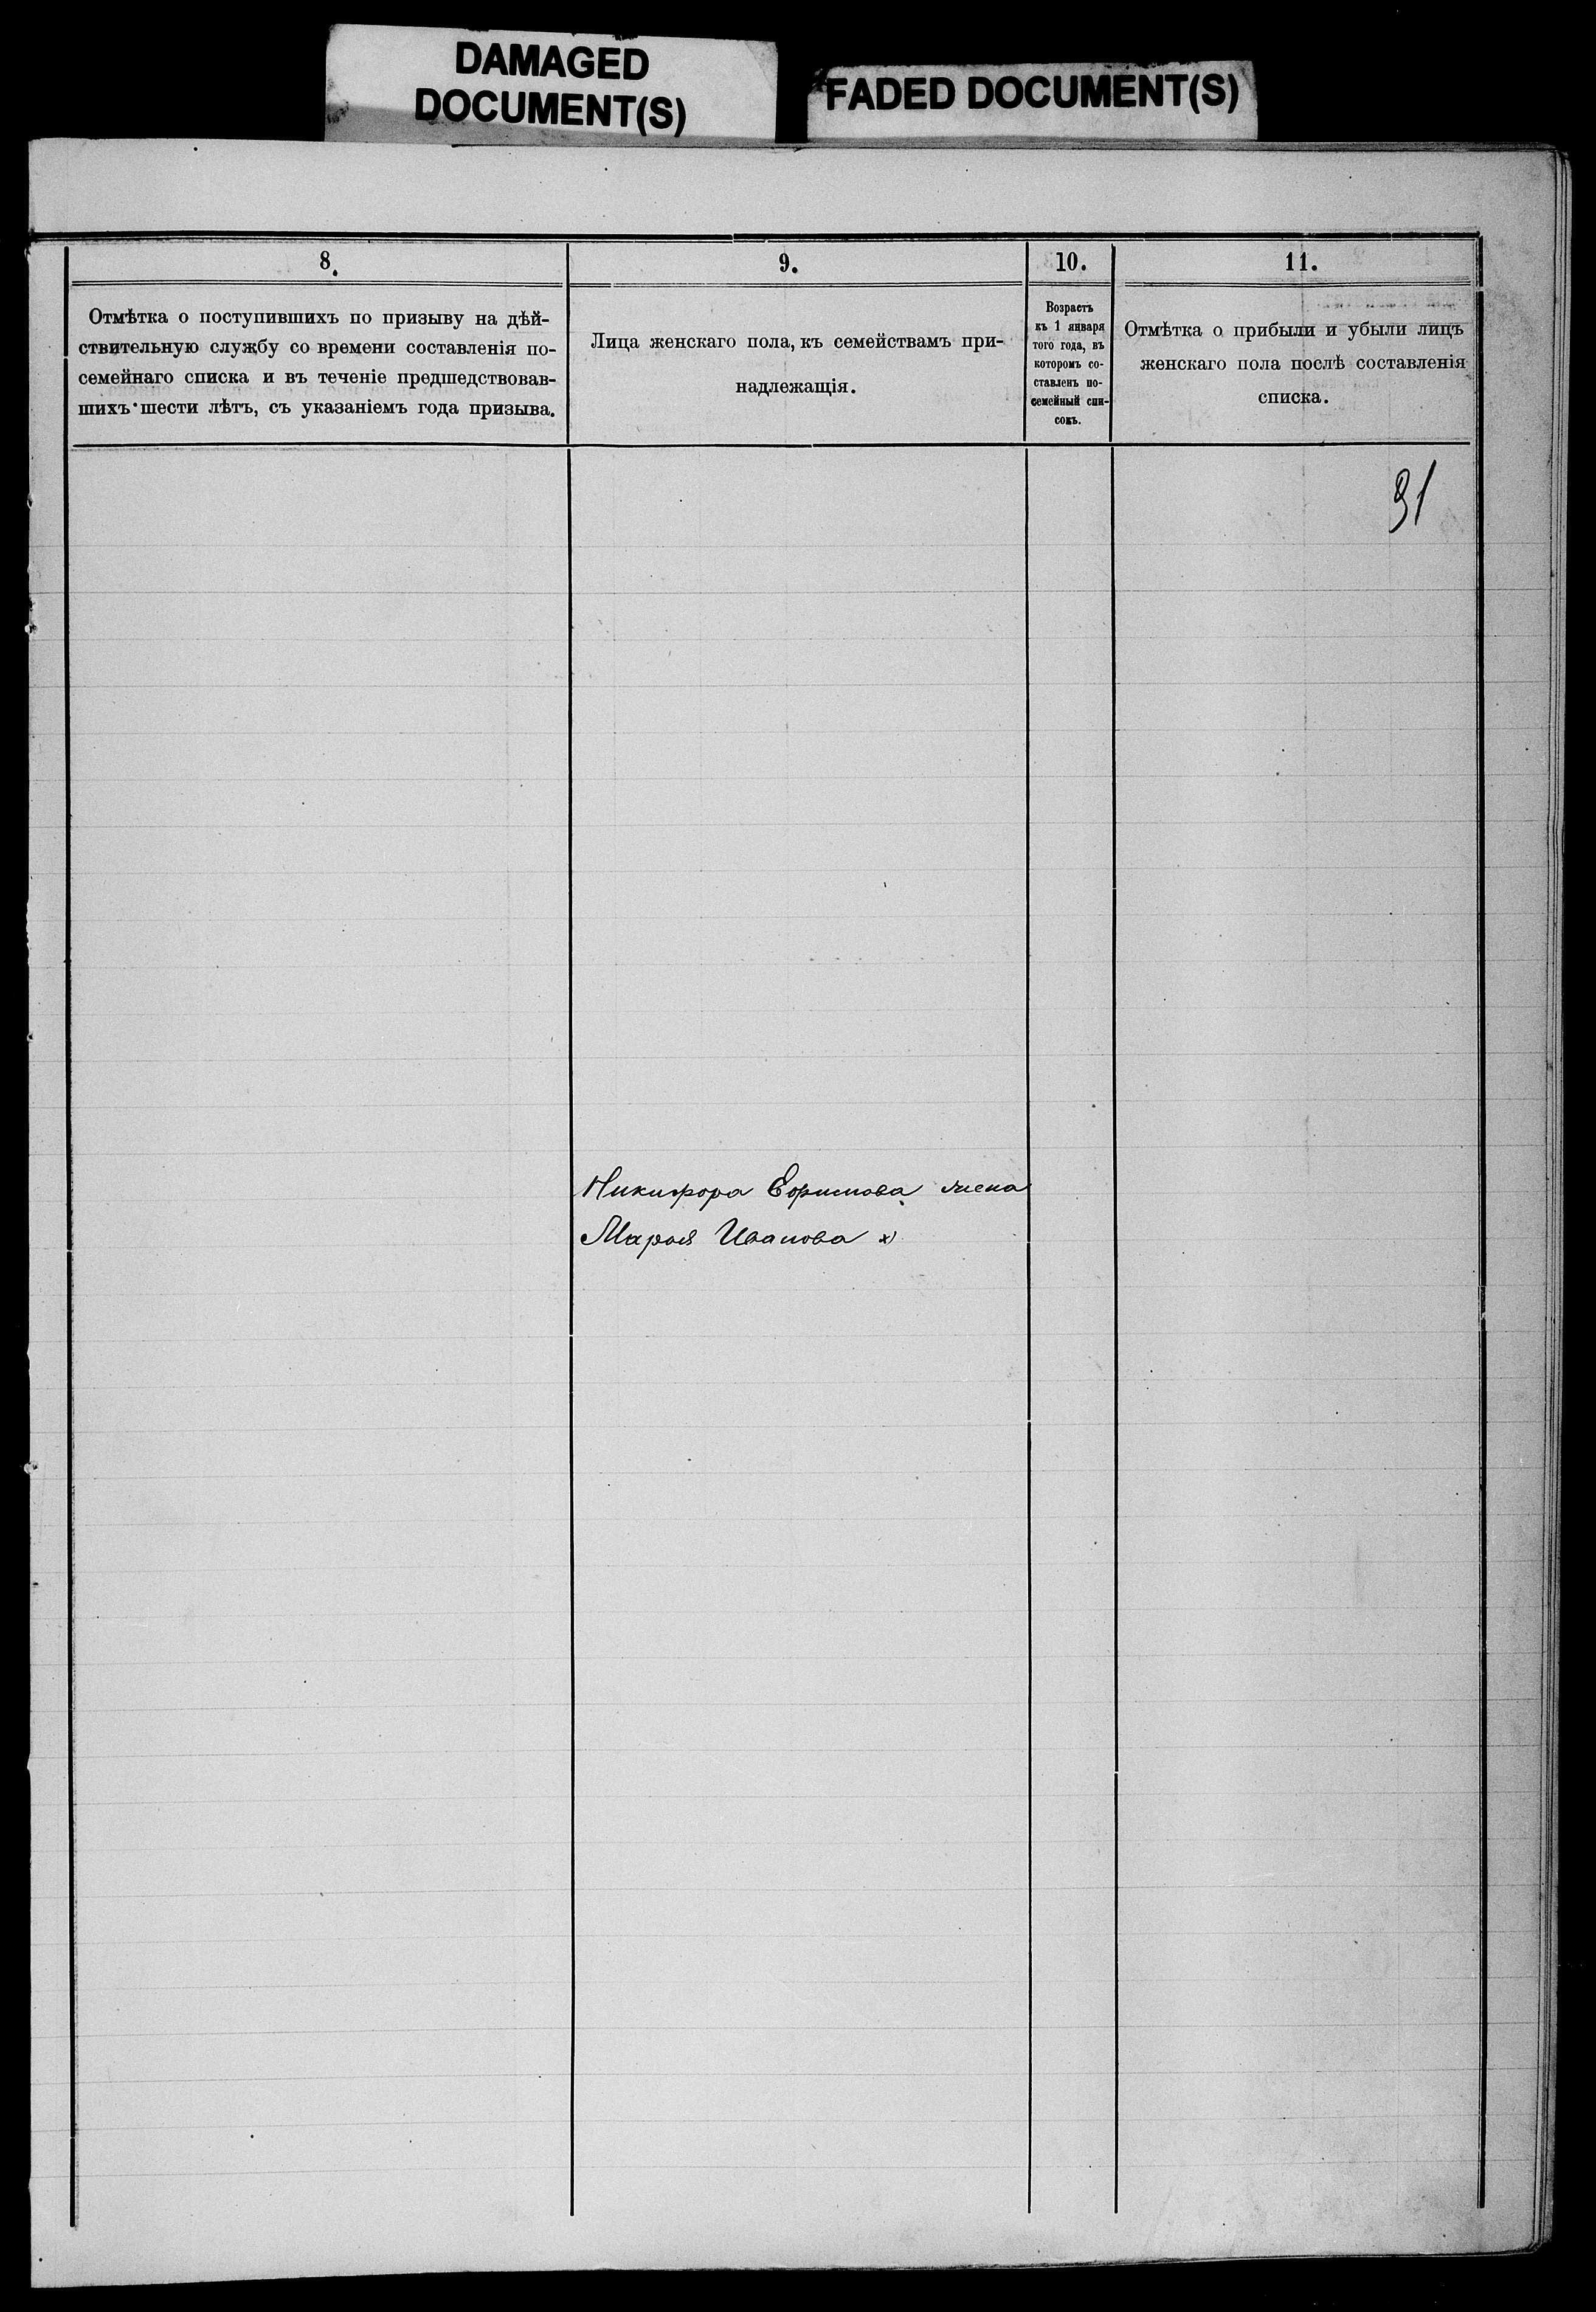 DAMAGED
DOCUMENT(S)
FADED DOCUMENT(S)
8.
Отмѣтка о поступившихъ по призыву на дѣй-
ствительную службу со времени составленія по-
семейнаго списка и въ теченіе предшедствовав-
шихъ шести лѣтъ, съ указаніемъ года призыва.
9.
Лица женскаго пола, къ семействамъ при-
надлежащія.
10.
Возрастъ
къ 1 января
того года, въ
которомъ со-
ставленъ по-
семейный спи-
сокъ.
11.
Отмѣтка о прибыли и убыли лицъ
женскаго пола послѣ составленія
списка.
31
Никифора Ефимова жена
Марья Иванова x)